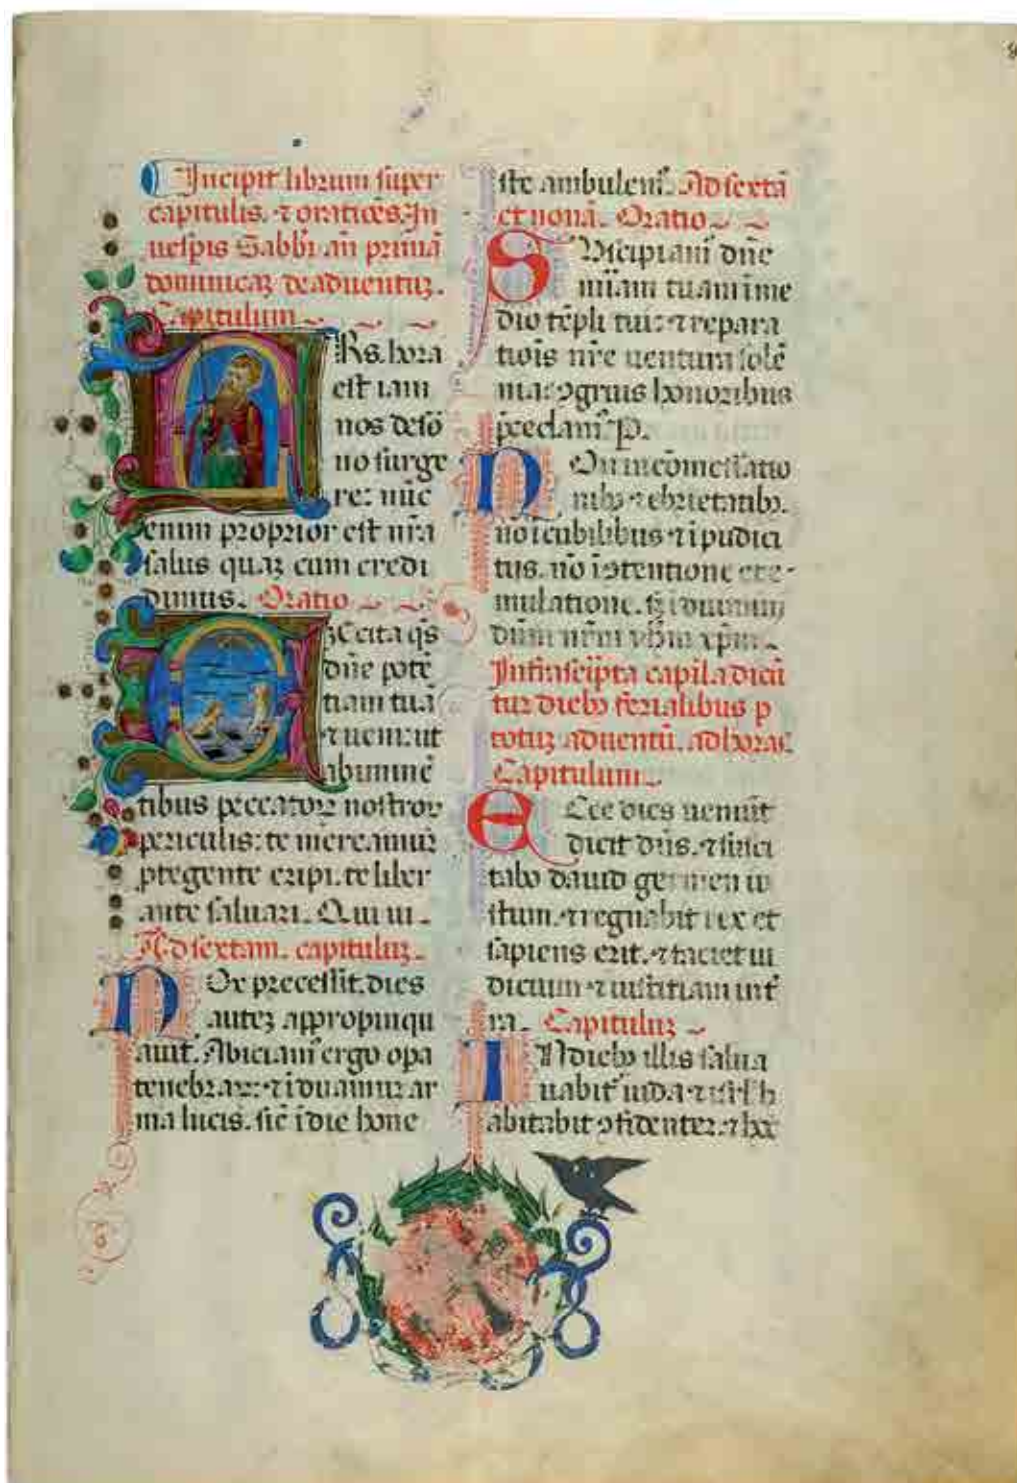 Incipit librum super
capitulis. ⁊ orationes. In
uesp̄is Sabb̄i an̄ primā
dominicaȝ de aduentuȝ.
Capitulum
FRs. hora
est iam
nos de sō
no surge
re: nūc
enim proprior est nr̄a
salus quaȝ cum credi
dimus. Oratio
EXcita qs̄
dn̄e potē
tiam tuā
⁊ ueni: ut
ab iminē
tibus peccatorꝝ nostroꝝ
periculis: te mereamur
ꝓtegente eripi. te liber
ante saluari. Qui ui.
Ad sextam. capituluȝ.
NOx precessit. dies
auteȝ appropinqu
auit. Abiciam᷒ ergo opa
tenebrarꝝ: ⁊ iduamur ar
ma lucis. sic̄ i die hone
ste ambulem᷒. Ad sextā
et nonā. Oratio
SUscipiam᷒ dn̄e
mīam tuam ī me
dio tēpli tui: ⁊ repara
tiōis nr̄e uentura solē
nia: ꝯgruis honoribus
precedam᷒. P.
NOn in cōmessatio
nibꝫ ⁊ ebrietatibꝫ.
nō ī cubilibus ⁊ ipudici
tiis. nō ī ꝯtentione et e
mulatione. sȝ iduimini
dn̄m nr̄m yh̄m xp̄m.
Infrascripta capi.la dicū
tur diebꝫ ferialibus p
totuȝ aduentū. ad horas
Capitulum
ECce dies ueniūt
dicit dn̄s. ⁊ susci
tabo dauid germen iu
stum. ⁊ regnabit rex et
sapiens erit. ⁊ faciet iu
dicium ⁊ iustitiam in t̄
ra. Capituluȝ
IN diebꝫ illis salua
uabit᷒ iuda ⁊ isrl̄ h
abitabit ꝯfidenter. ⁊ hoc